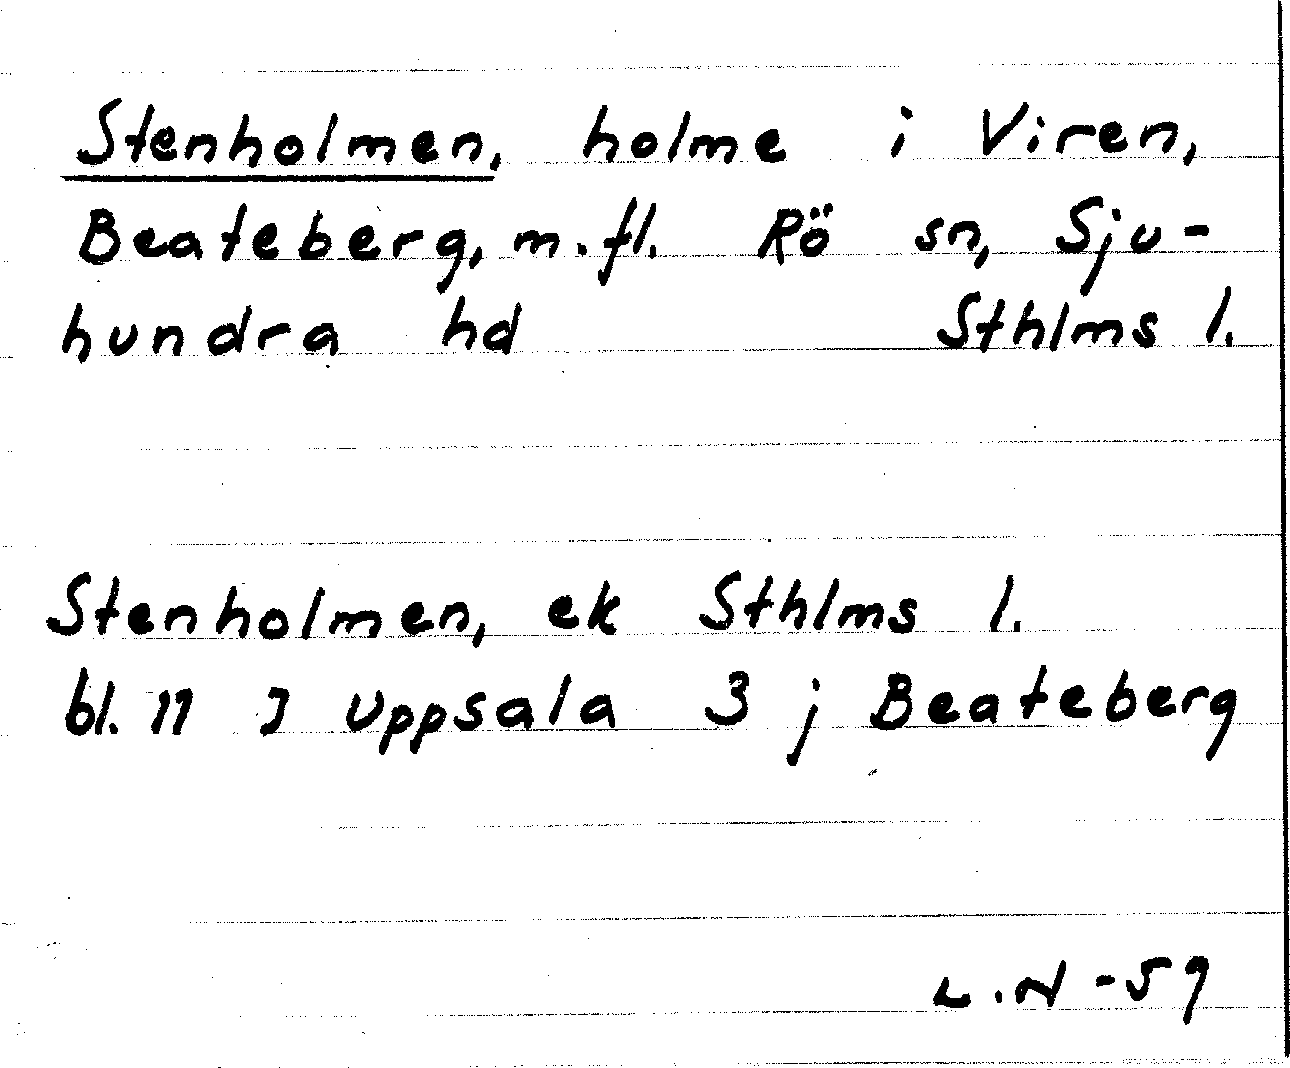 Stenholmen, holme i Viren,
Beateberg, m.fl. Rö sn, Sju-
hundra hd Sthlms l.
Stenholmen, ek Sthlms l.
bl. 11 J Uppsala 3 j Beateberg
L.N -59